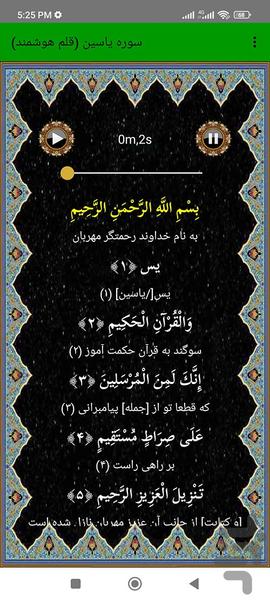 5:25 PM
سوره یاسین (قلم هوشمند)
0m,2s
بِسْمِ اللَّهِ الرَّحْمَنِ الرَّحِيمِ
به نام خداوند رحمتگر مهربان
یس ﴿۱﴾
یس[/یاسین] (۱)
وَالْقُرْآنِ الْحَكِيمِ ﴿۲﴾
سوگند به قرآن حکمت آموز (۲)
إِنَّكَ لَمِنَ الْمُرْسَلِينَ ﴿۳﴾
که قطعا تو از [جمله] پیامبرانی (۳)
عَلَى صِرَاطٍ مُسْتَقِيمٍ ﴿۴﴾
بر راهی راست (۴)
تَنْزِيلَ الْعَزِيزِ الرَّحِيمِ ﴿۵﴾
[و کتابت] از جانب آن عزیز مهربان نازل شده است